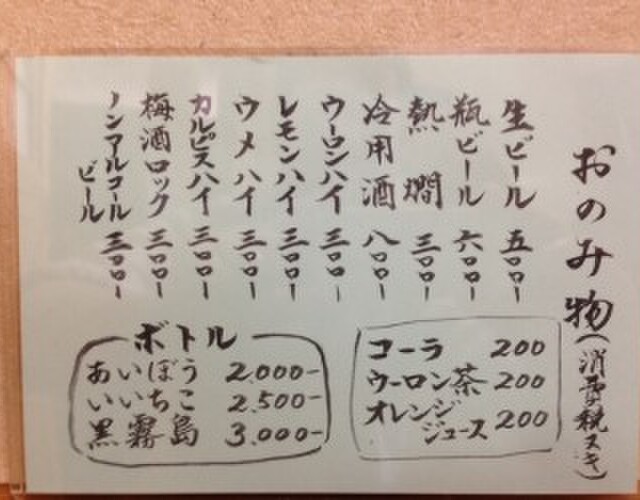 おのみ物(消費税ヌキ)
生ビール 五〇〇ー
瓶ビール 六〇〇ー
熱燗 三〇〇ー
冷用酒 八〇〇ー
ウーロンハイ 三〇〇ー
レモンハイ 三〇〇ー
ウメハイ 三〇〇ー
カルピスハイ 三〇〇ー
梅酒ロック 三〇〇ー
ノンアルコール
ビール 三〇〇ー
コーラ 200
ウーロン茶 200
オレンジ
ジュース 200
ボトル
あいぼう 2.000-
いいちこ 2.500-
黒霧島 3.000-